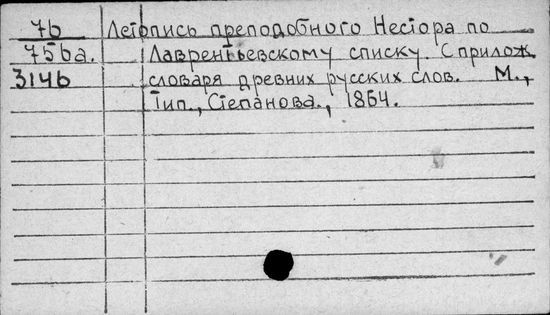 7б Летопись преподобного Нестора по
75ба. Лаврентьевскому списку. С прилож
3146 словаря древних русских слов. М.,
Тип., Степанова., 1864.